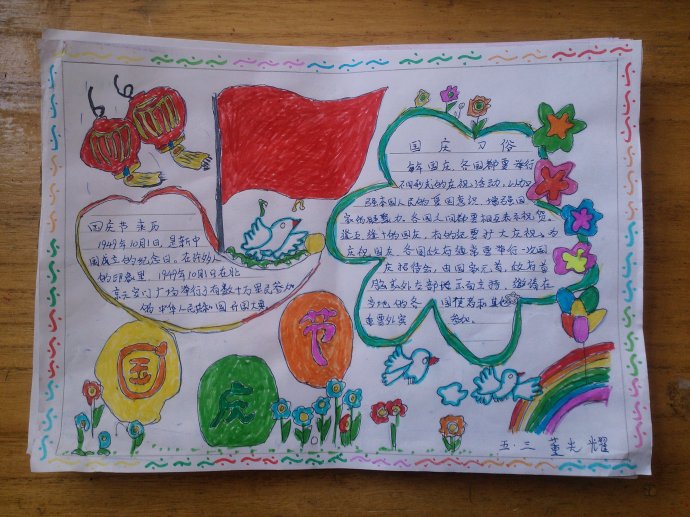 国庆节来历
1949年10月1日,是新中
国成立的纪念日。在许多人
的印象里,1949年10月1日在北
京天安门广场举行了有数十万军民参加
的中华人民共和国开国大典
国庆习俗
每年国庆,各国都要举行
不同形式的庆祝活动,以加
强本国人民的爱国意识,增强国
家的凝聚力。各国之间都要相互表示祝贺。
逢五逢十的国庆,有的还要扩大庆祝。为
庆祝国庆,各国政府通常要举行一次国
庆招待会,由国家元首、政府首
脑或外交部长出面主持,邀请在
当地的各国使节和其他
重要外宾参加。
国
庆
节
五·三 董光耀